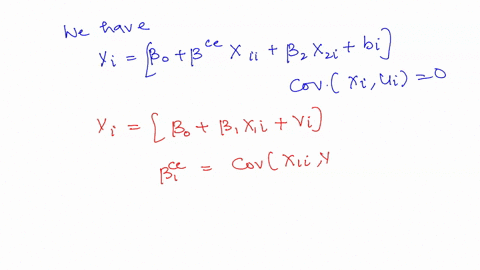 We have
Yi = [β₀ + β^ce X₁i + β₂X₂i + bi]
Cov.(Xi, ui) = 0
Yi = [β₀ + β₁X₁i + Vi]
β₁^ce = Cov(X₁i, Y